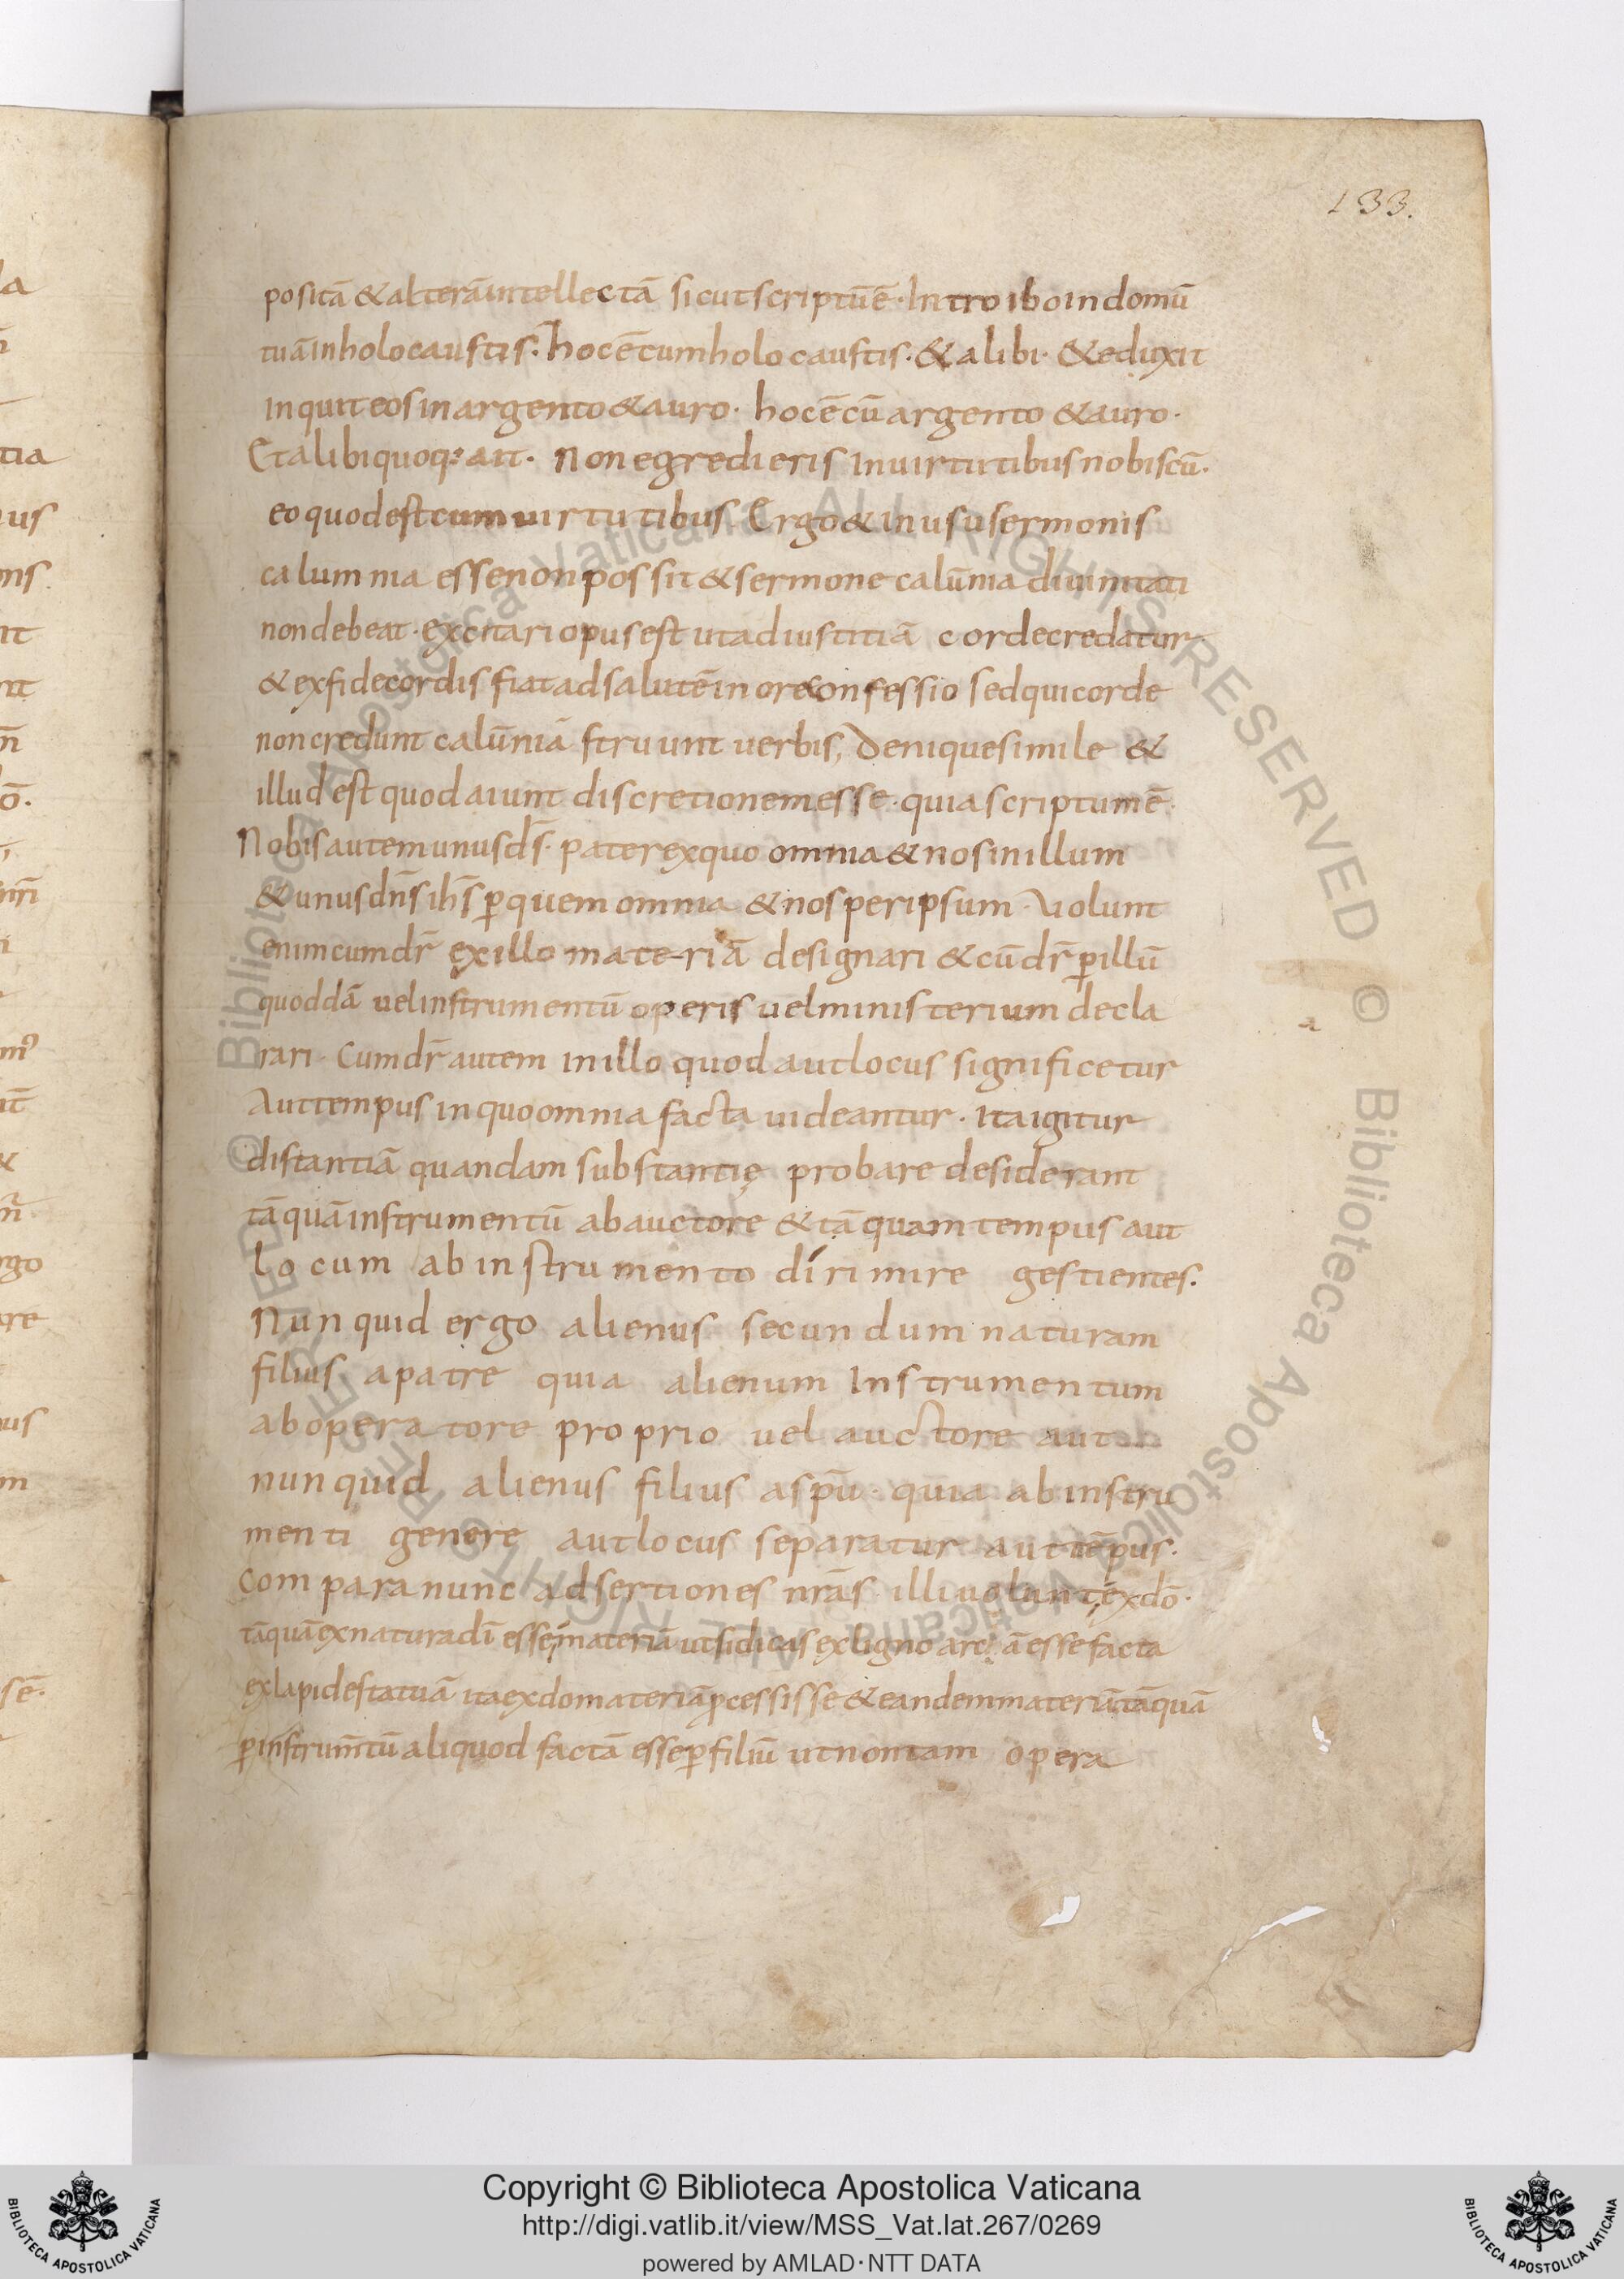 133.
positā & alterā intellectā sicut scriptū ē · Introibo in domū
tuā in holocaustis · hoc ē cum holocaustis · & alibi · & eduxit
inquit eos in argento & auro · hoc ē cū argento & auro ·
Et alibi quoq; ait · Non egredieris in uirtutibus nobiscū ·
eo quod est cum uirtutibus Ergo & in usu sermonis
calumnia esse non possit & sermone calūnia diuinitati
non debeat · excitari opus est ut ad iustitiā corde credatur
& ex fide cordis fiat ad salutē in ore confessio sed qui corde
non credunt calūniā struunt uerbis, Denique simile &
illud est quod aiunt discretionem esse · quia scriptum ē ·
Nobis autem unus d̄s · pater ex quo omnia & nos in illum
& unus dn̄s ih̄s ꝑ quem omnia & nos per ipsum · Volunt
enim cum dr̄ ex illo materiā designari & cū dr̄ ꝑ illū
quoddā uel instrumentū operis uel ministerium decla
rari · Cum dr̄ autem in illo quod aut locus significetur
Aut tempus in quo omnia facta uideantur · Ita igitur
distantiā quandam substantię probare desiderant
tā quā instrumentū ab auctore & tā quam tempus aut
locum ab instrumento dírimire gestientes ·
Nunquid ergo alienus secundum naturam
filius a patre quia alienum instrumentum
ab operatore proprio uel auctore aut
nunquid alienus filius a spū · quia ab instru
menti genere aut locus separatur aut tēpus ·
Compara nunc adsertiones nr̄as · illi uolunt ex dō ·
tā quā ex natura dī esse materiā ut si dicas ex ligno arcā esse facta
ex lapide statuā ita ex do materiā ꝓcessisse & eandem materiā tā quā
ꝑ instrum̄tū aliquod factā esse ꝑ filiū ut non tam opera
Copyright © Biblioteca Apostolica Vaticana
http://digi.vatlib.it/view/MSS_Vat.lat.267/0269
powered by AMLAD · NTT DATA
BIBLIOTECA APOSTOLICA VATICANA
BIBLIOTECA APOSTOLICA VATICANA
© Biblioteca Apostolica Vaticana ALL RIGHTS RESERVED © Biblioteca Apostolica Vaticana ALL RIGHTS RESERVED